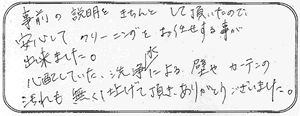 事前の説明をきちんとして頂いたので
安心してクリーニングをお任せする事が
出来ました。
心配していた、洗浄水による壁やカーテンの
汚れも無く仕上げて頂きありがとうございました。